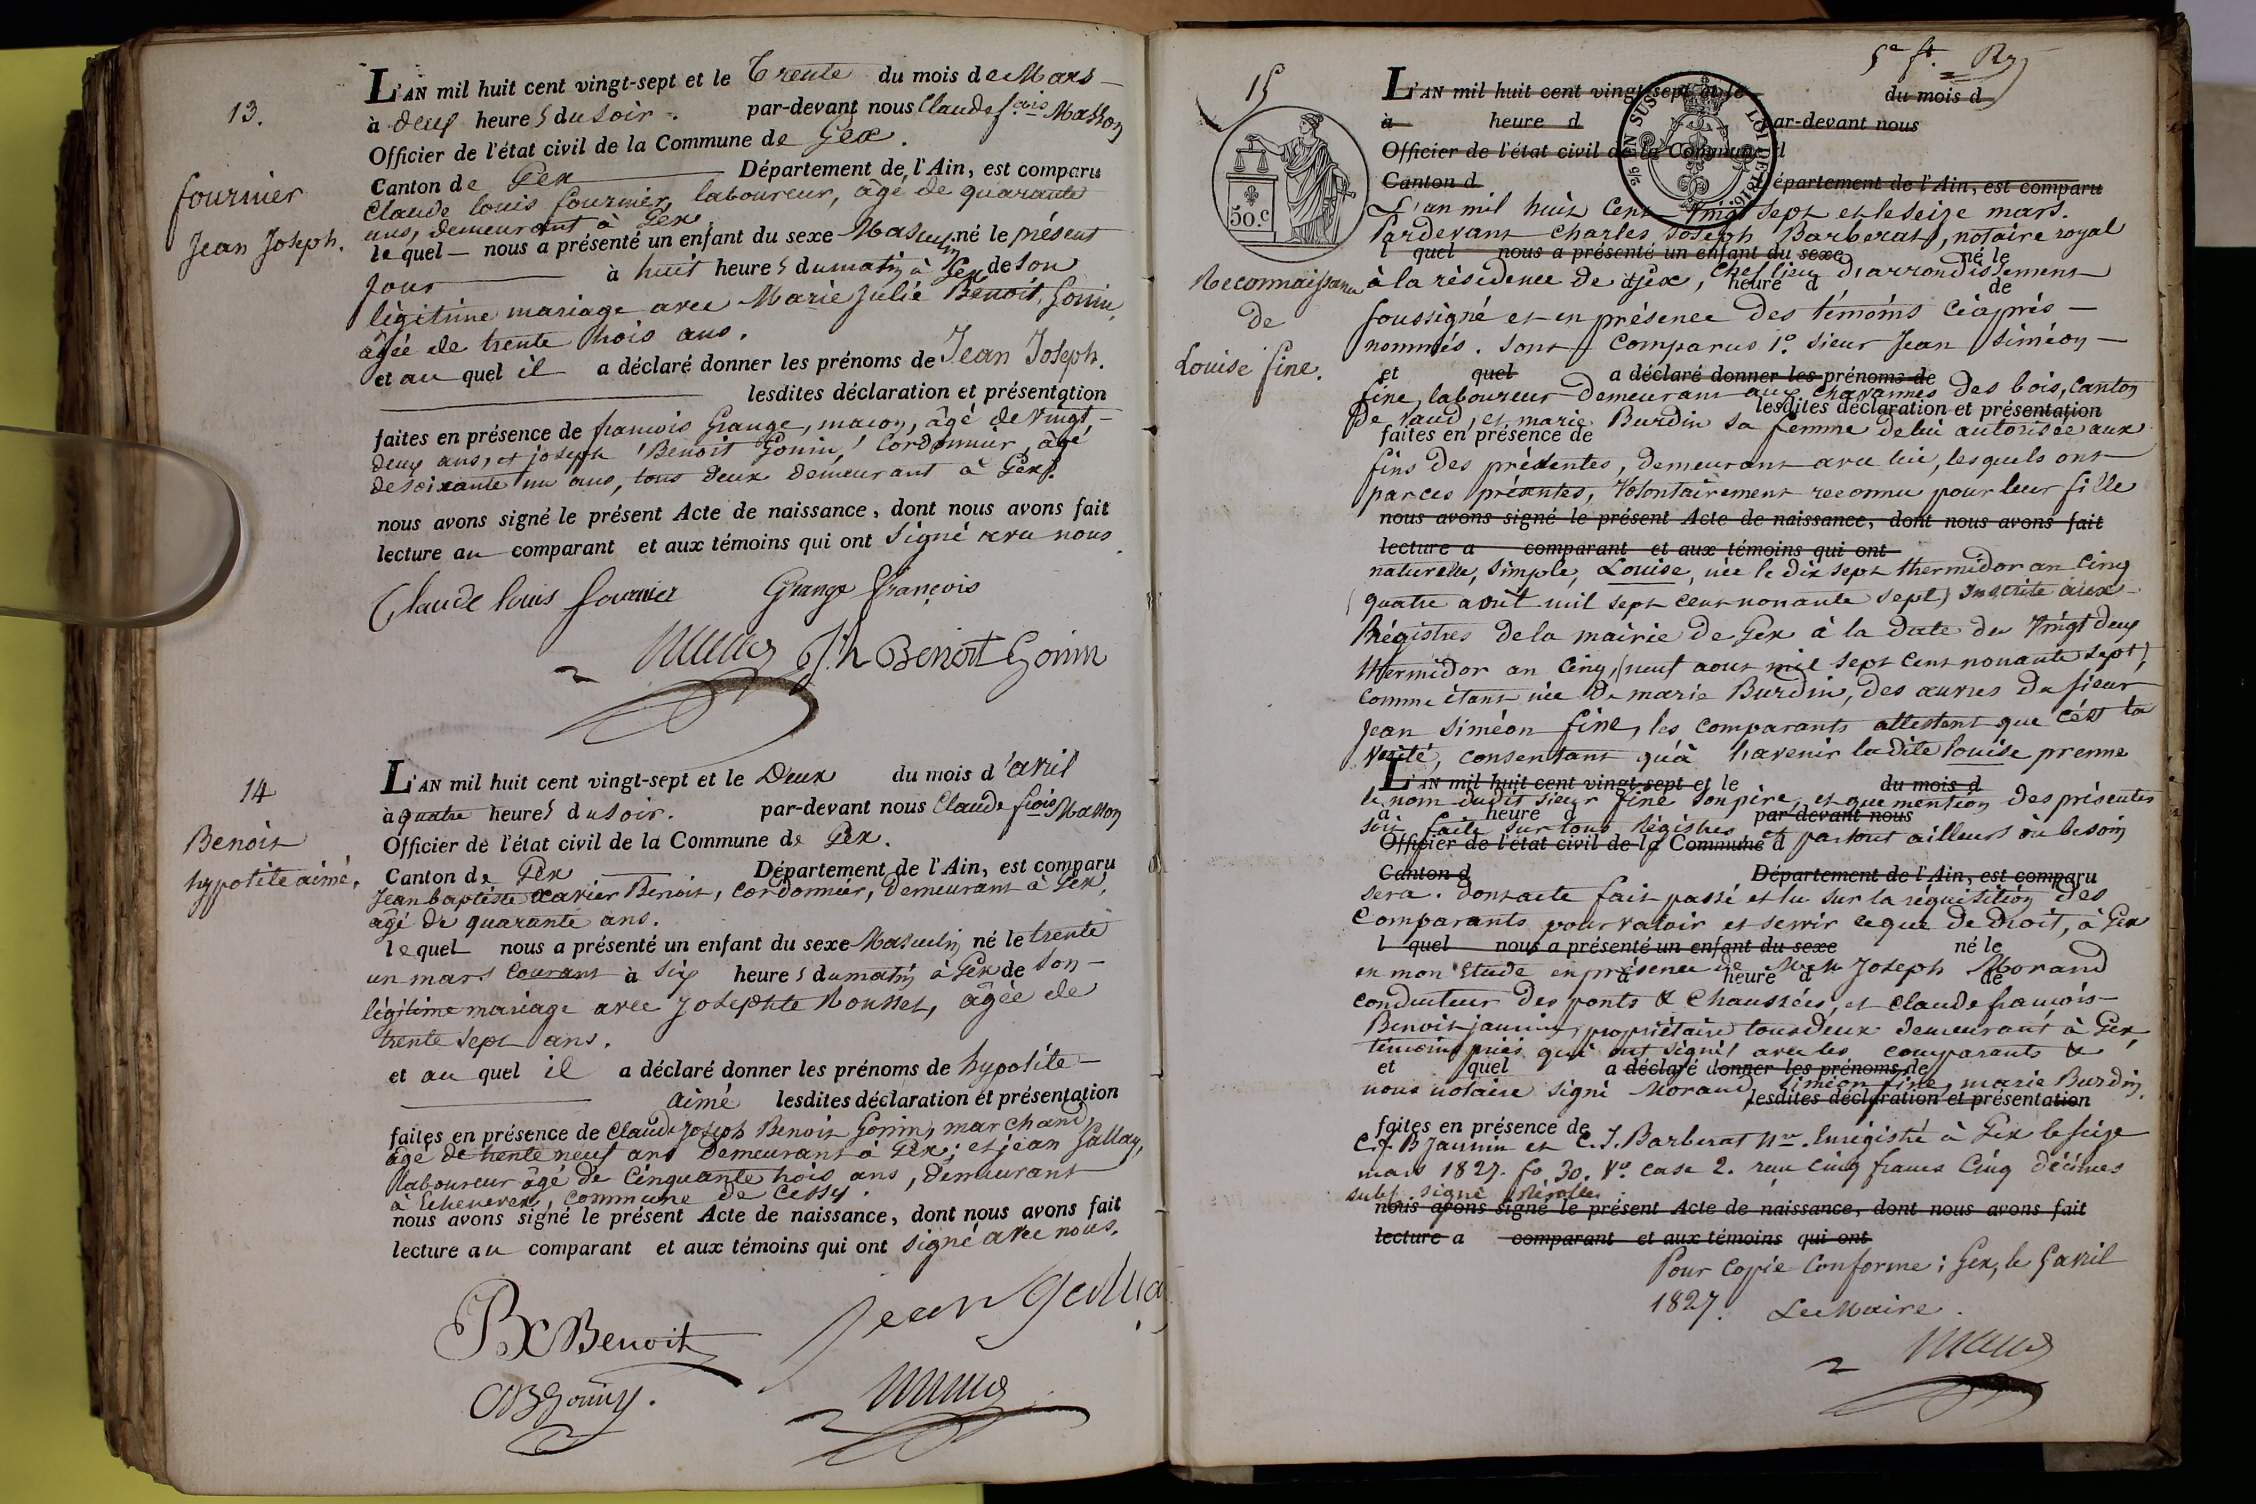 13.
fournier
Jean Joseph.
L'AN mil huit cent vingt-sept et le Trente du mois de Mars
à deux heures du soir. par-devant nous Claude f.ois Masson
Officier de l'état civil de la Commune de Gex.
Canton de Gex Département de l'Ain, est comparu
Claude louis fournier, laboureur, âgé de quarante
ans, demeurant à Gex,
lequel nous a présenté un enfant du sexe Masculin né le présent
jour à huit heures du matin à Gex de son
légitime mariage avec Marie Julie Benoit Gonin,
âgée de trente trois ans.
et au quel il a déclaré donner les prénoms de Jean Joseph.
lesdites déclaration et présentation
faites en présence de francois Grange, maçon, âgé de vingt
deux ans, et joseph Benoit Gonin, Cordonnier, âgé
de soixante un ans, tous deux demeurant à Gex.
nous avons signé le présent Acte de naissance, dont nous avons fait
lecture au comparant et aux témoins qui ont signé avec nous.
Claude louis fournier Grange françois
Jh Benoit Gonin
14
Benoit
hypolite aimé.
L'AN mil huit cent vingt-sept et le Deux du mois d'avril
à quatre heures du soir. par-devant nous Claude fois Masson
Officier de l'état civil de la Commune de Gex.
Canton de Gex Département de l'Ain, est comparu
Jean baptiste xavier Benoit, cordonnier, demeurant à Gex,
âgé de quarante ans.
lequel nous a présenté un enfant du sexe Masculin né le trente
un mars courant à six heures du matin à Gex de son
légitime mariage avec josephte Rousset, âgée de
trente sept ans.
et au quel il a déclaré donner les prénoms de hypolite
aimé lesdites déclaration et présentation
faites en présence de Claude Joseph Benoit Gonin, marchand,
âgé de trente neuf ans demeurant à Gex; et jean Gallay,
laboureur âgé de Cinquante trois ans, demeurant
à Echenevex, commune de Cessy.
nous avons signé le présent Acte de naissance, dont nous avons fait
lecture au comparant et aux témoins qui ont signé avec nous.
BX Benoit
15
50.c
25 EN SUS LOI DE 1816.
Reconnaissance
de
Louise fine.
L'AN mil huit cent vingt-sept et le du mois d
à heure d par-devant nous
Officier de l'état civil de la Commune d
Canton d Département de l'Ain, est comparu
L'an mil huit Cent vingt sept et le seize mars.
Pardevant Charles Joseph Barberat, notaire royal
l quel nous a présenté un enfant du sexe né le
à la résidence de Gex, Chef lieu d'arrondissement
heure d de
soussigné et en présence des témoins Ciaprès
nommés. sont Comparus 1o. sieur Jean Siméon
et quel a déclaré donner les prénoms de
fine, laboureur demeurant aux Chavannes des bois, Canton
lesdites déclaration et présentation
de vaud, et marie Burdin sa femme de lui autorisée aux
faites en présence de
fins des présentes, demeurant avec lui, lesquels ont
par ces présentes, Volontairement reconnu pour leur fille
nous avons signé le présent Acte de naissance, dont nous avons fait
lecture a comparant et aux témoins qui ont
naturelle, simple, Louise, née le dix sept thermidor an Cinq
(quatre août mil sept cent nonante sept) Inscrite aux
Régistres de la mairie de Gex à la date du Vingt deux
thermidor an Cinq, (neuf aout mil sept cent nonante sept)
comme étant née de marie Burdin, des œuvres du sieur
Jean Siméon fine, les comparants attestent que c'est la
vérité, consentant qu'à l'avenir ladite louise prenne
L'AN mil huit cent vingt-sept et le du mois d
le nom dudit sieur fine son père, et que mention des présentes
à heure d par-devant nous
soit faite sur tous Régistres, et partout ailleurs où besoin
Officier de l'état civil de la Commune d
Canton d Département de l'Ain, est comparu
sera. dont acte fait passé et lu sur la réquisition des
Comparants pour valoir et servir ce que de droit, à Gex
l quel nous a présenté un enfant du sexe né le
en mon Etude en présence de Joseph Morand
à heure d de
conducteur des ponts & Chaussées, et Claude francois
Benoit jaunin, propriétaire tous deux demeurant à Gex,
témoins priés qui ont signés avec les comparants &
et quel a déclaré donner les prénoms de
nous notaire signé Morand, Siméon fine, marie Burdin,
lesdites déclaration et présentation
faites en présence de
C.f. B Jaunin et C. J. Barberat nre. Enregistré à Gex le seize
mars 1827. fo 30. Vo. case 2. reçu cinq francs Cinq décimes
signé
nous avons signé le présent Acte de naissance, dont nous avons fait
lecture a comparant et aux témoins qui ont
Pour Copie Conforme; Gex, le 5 avril
1827. Le Maire.